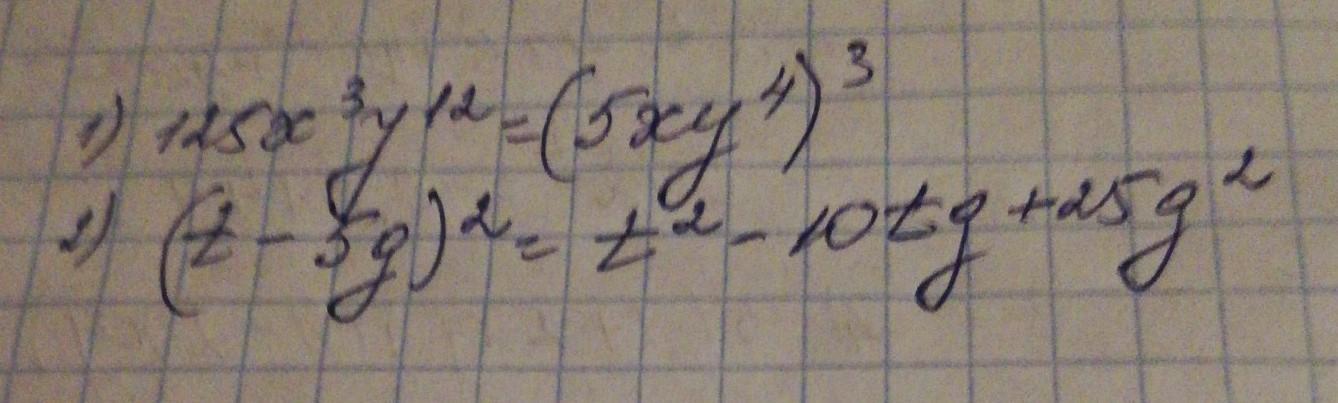 1) 125x³y¹² = (5xy⁴)³
2) (t - 5g)² = t² - 10tg + 25g²